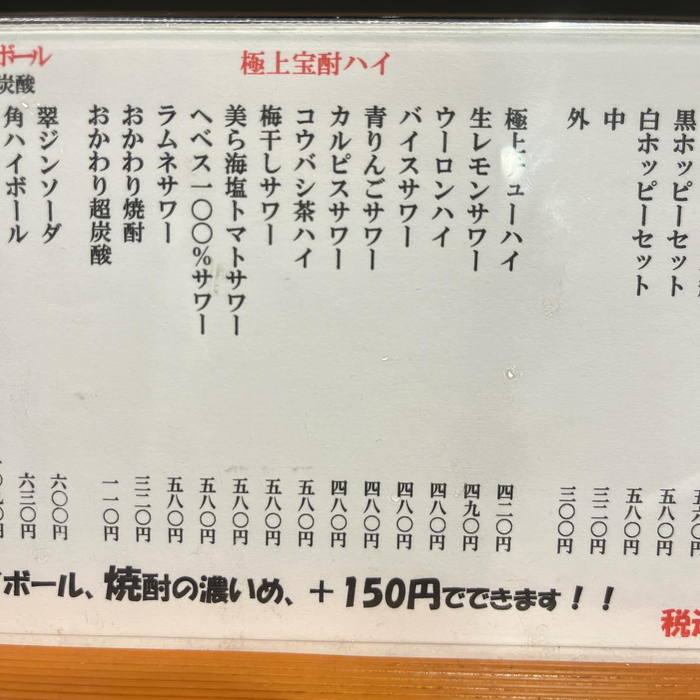 黒ホッピーセット 五八〇円
白ホッピーセット 五八〇円
中 三二〇円
外 三〇〇円
極上宝酎ハイ
極上チューハイ 四二〇円
生レモンサワー 四九〇円
ウーロンハイ 四八〇円
バイスサワー 四八〇円
青りんごサワー 四八〇円
カルピスサワー 四八〇円
コウバシ茶ハイ 五八〇円
梅干しサワー 五八〇円
美ら海塩トマトサワー 五八〇円
ヘベス一〇〇%サワー 五八〇円
ラムネサワー 五八〇円
おかわり焼酎 三二〇円
おかわり超炭酸 一一〇円
ボール
炭酸
翠ジンソーダ 六〇〇円
角ハイボール 六三〇円
ボール、焼酎の濃いめ、+150円でできます!!
税込